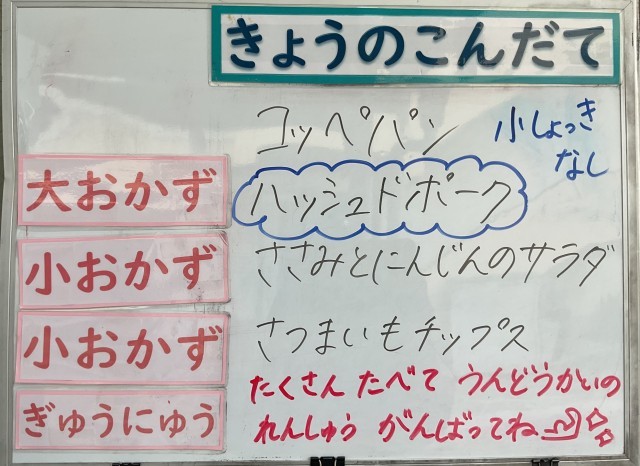 きょうのこんだて
コッペパン
小しょっき
なし
大おかず ハッシュドポーク
小おかず ささみとにんじんのサラダ
小おかず さつまいもチップス
たくさん たべて うんどうかいの
ぎゅうにゅう れんしゅう がんばってね